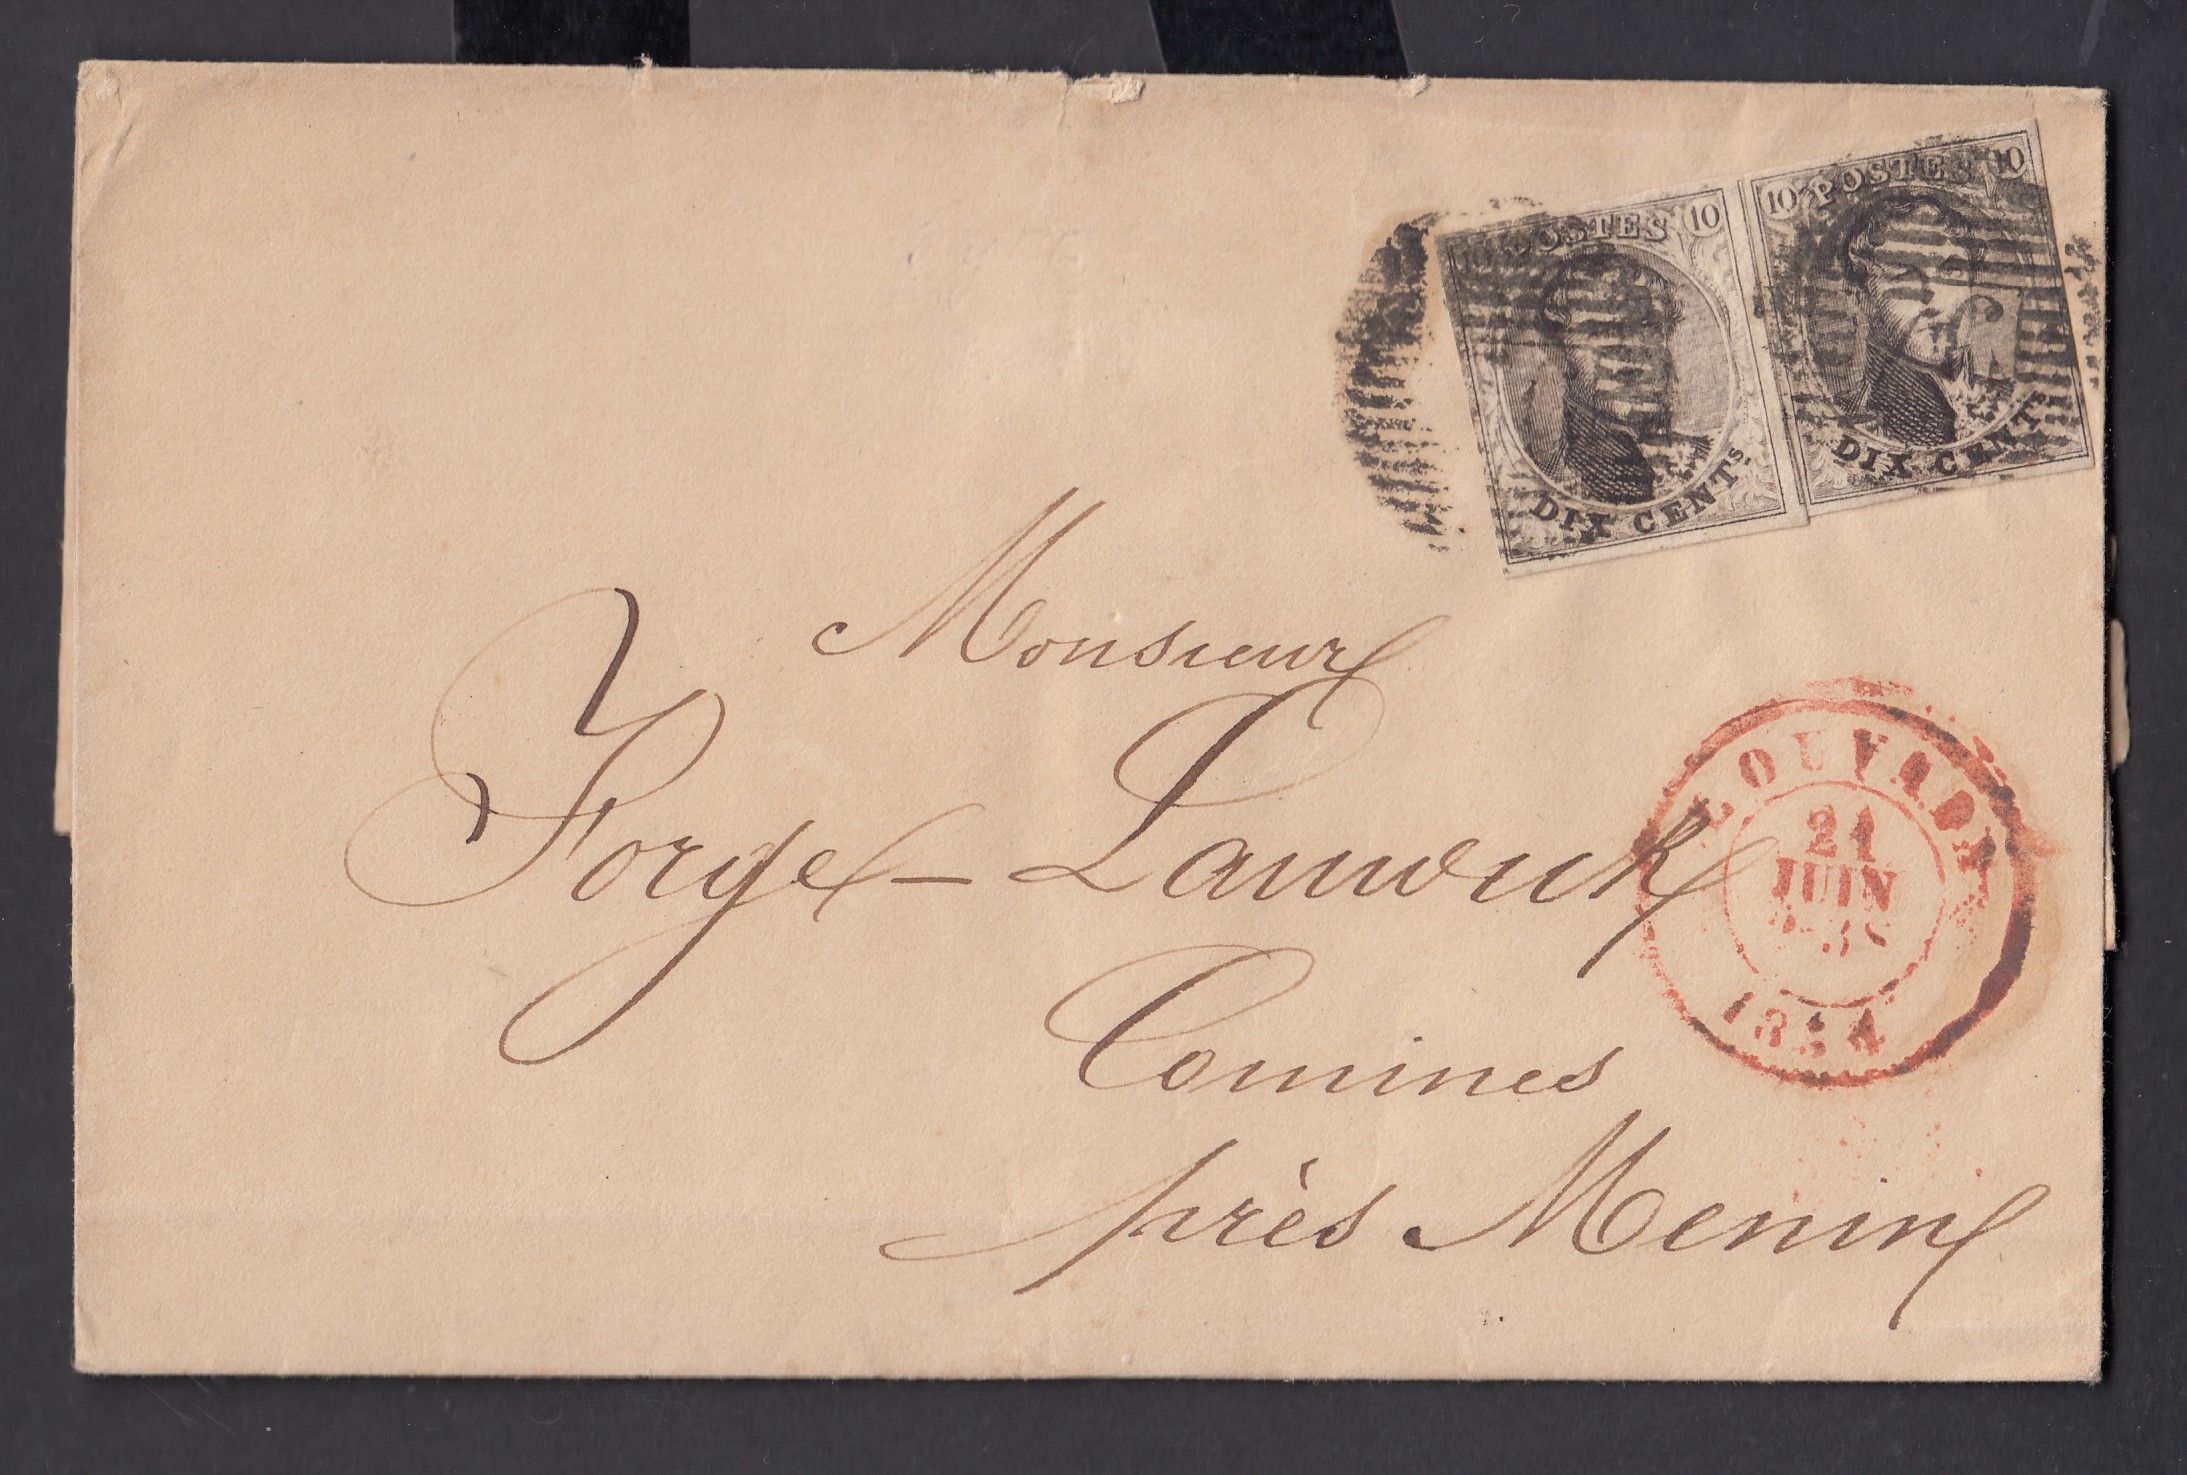 10 POSTES 10
DIX CENTS.
10 POSTES 10
DIX CENTS.
Monsieur
Forge-Lauwick
Comines
près Menin
LOUVAIN
21
JUIN
1854